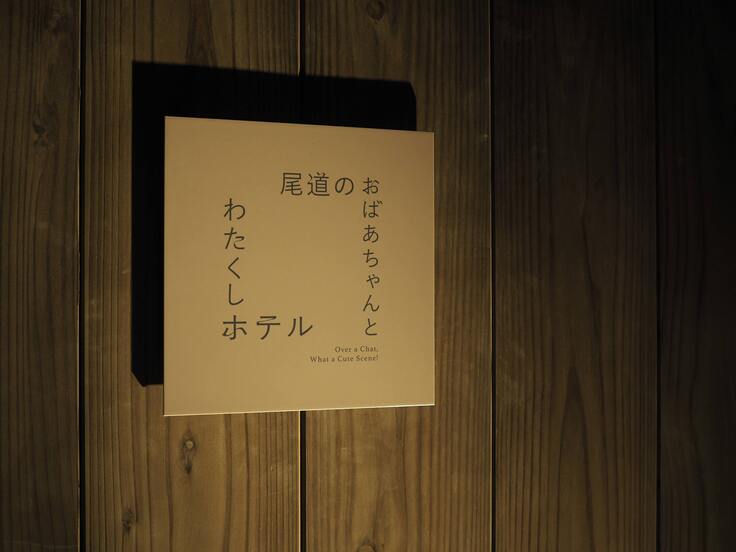 尾道の
おばあちゃんと
わたくし
ホテル
Over a Chat,
What a Cute Scene!